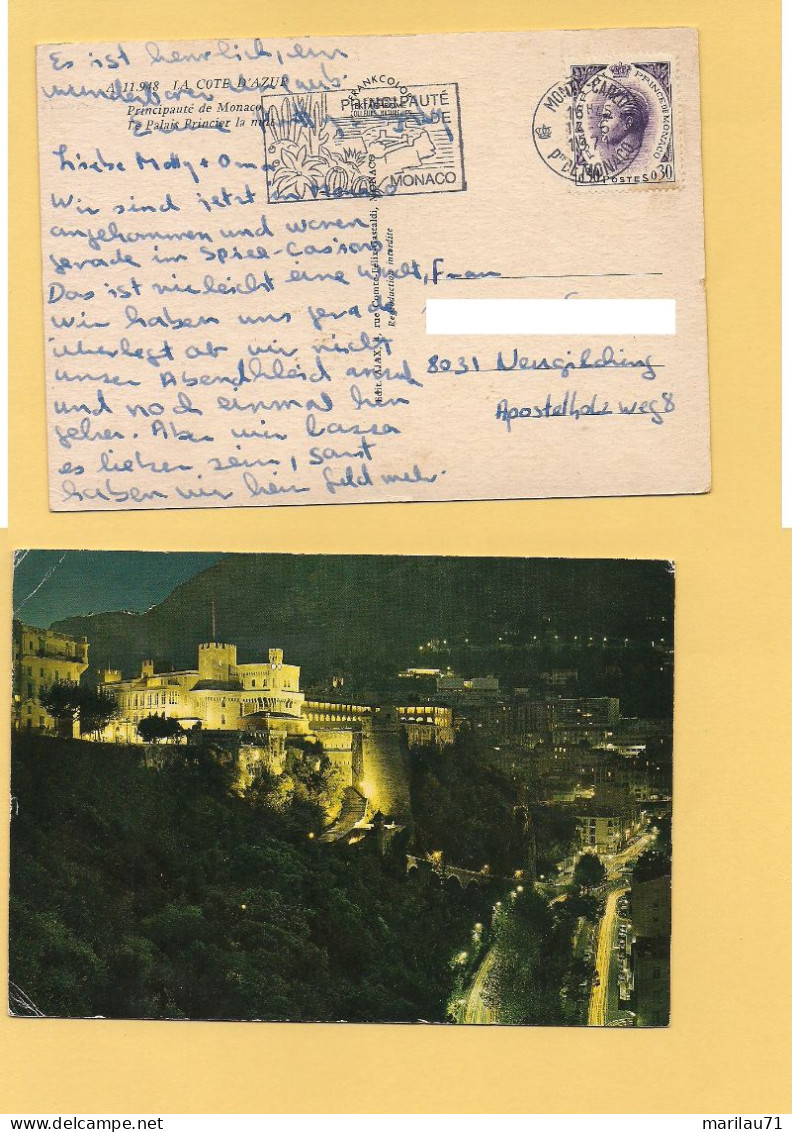 Es ist herrlich, ein
wunderbarer Urlaub.
A 11.948 LA COTE D'AZUR
Principauté de Monaco
Le Palais Princier la nuit
Liebe Molly + Oma
Wir sind jetzt in Monaco
angekommen und waren
gerade im Spiel-Casions
Das ist vielleicht eine Welt,
Wir haben uns gerade
überlegt ob wir nicht
unser Abendkleid
und noch einmal hin
gehen. Aber wir lassen
es lieber sein, sonst
haben wir kein Geld mehr.
PRINCIPAUTÉ
DE
MONACO
MONTE-CARLO
1974
PTE DE MONACO
PRINCE DE MONACO
POSTES 0,30
Edit. AJAX, rue Comte-Félix-Gastaldi, MONACO
Reproduction interdite
Frau
8031 Neugilching
Apostelholzweg 8
marilau71